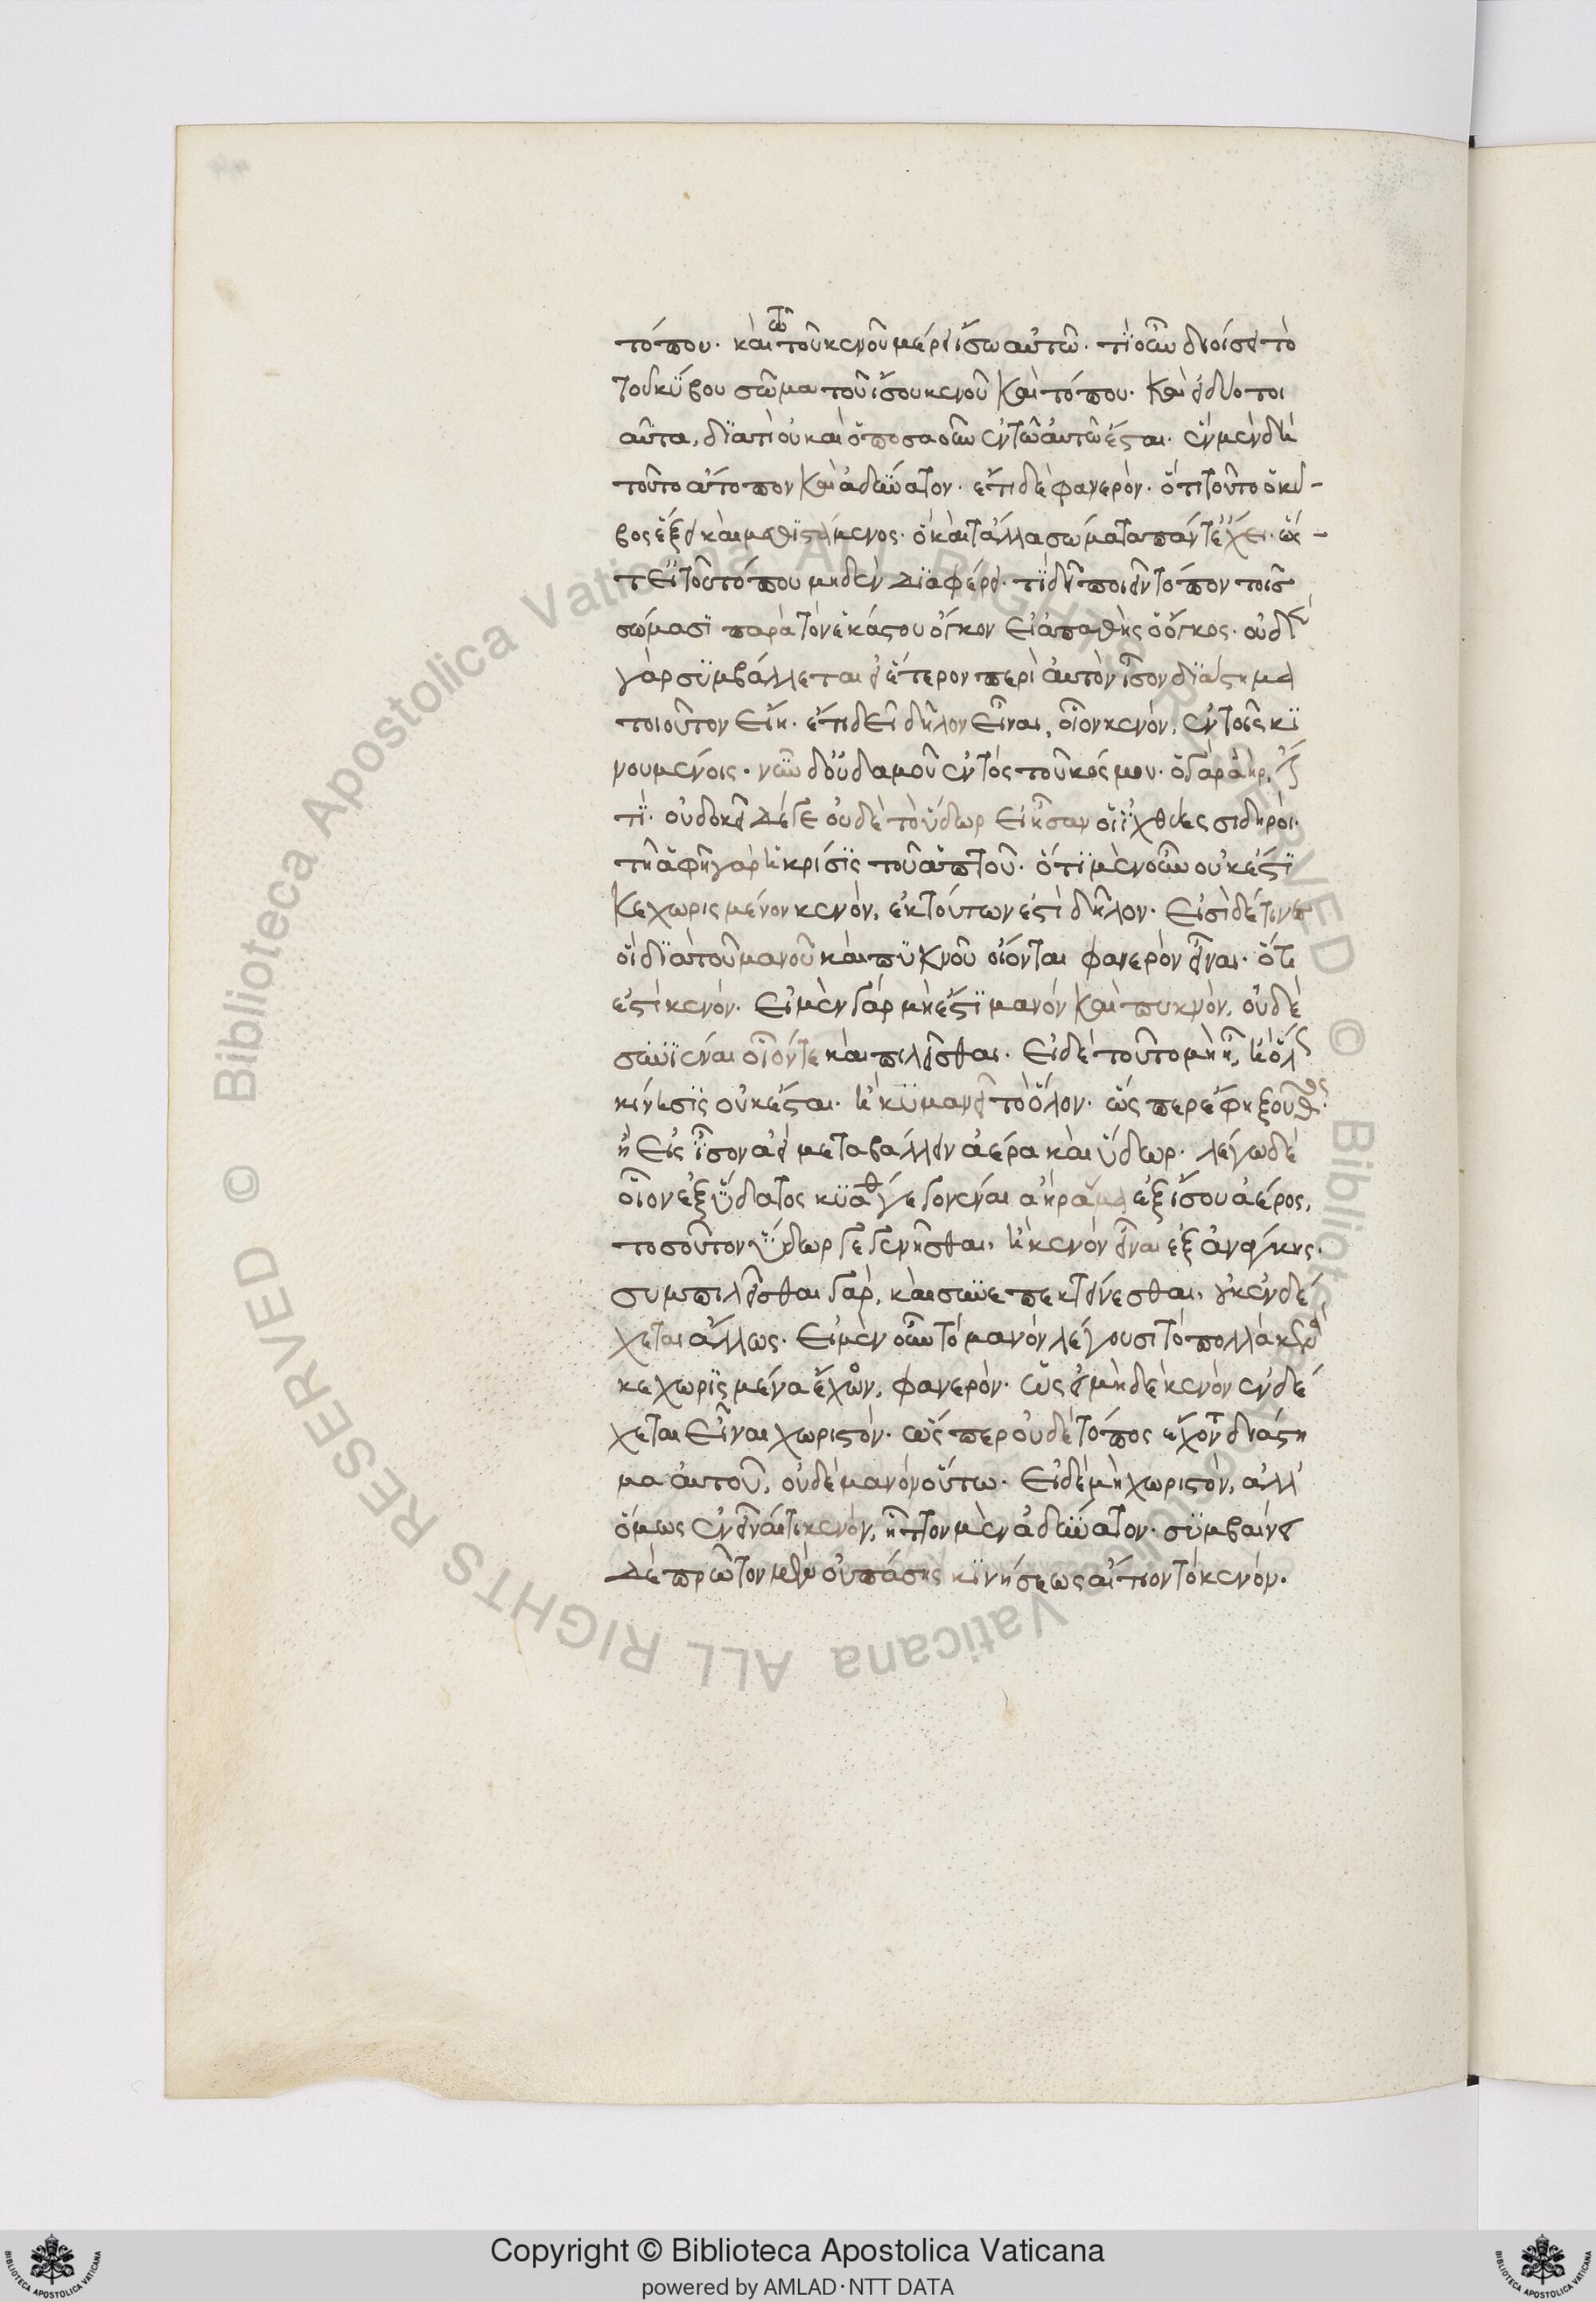 τόπου. καὶ τῶ τοῦ κενοῦ μέρει ἴσω αὐτῶ. τί οὖν διοίσει τὸ
τοῦ κύβου σῶμα τοῦ ἴσου κενοῦ καὶ τόπου. καὶ εἰ δύο τοι
αῦτα, διατί οὐ καὶ ὅποσα οὖν ἐν τῶ αὐτῶ ἔσται. ἓν μὲν δὴ
τοῦτο ἄτοπον καὶ ἀδύνατον. ἔτι δὲ φανερὸν. ὅτι τοῦτο ὁ κύ-
βος ἕξει καὶ μεθιστάμενος. ὃ καὶ τἆλλα σώματα πάντ' ἔχει. ὥσ-
τ εἰ τοῦ τόπου μηδὲν διαφέρει. τί δεῖ ποιεῖν τόπον τοῖς
σώμασι παρὰ τὸν ἑκάστου ὄγκον εἰ ἀπαθὴς ὁ ὄγκος. οὐδὲν
γὰρ συμβάλλεται εἰ ἕτερον περὶ αὐτὸν ἴσον διάστημα
τοιοῦτον εἴη. ἔτι δεῖ δῆλον εἶναι, οἷον κενὸν, ἐν τοῖς κι
νουμένοις. νῦν δ' οὐδαμοῦ ἐντὸς τοῦ κόσμου. ὁ γὰρ ἀὴρ, ἔς
τι. οὐ δοκεῖ δέ γε οὐδὲ τὸ ὕδωρ εἰ ἦσαν οἱ ἰχθύες σιδηροῖ.
τῆ ἁφῆ γὰρ ἡ κρίσις τοῦ ἁπτοῦ. ὅτι μὲν οὖν οὐκ ἔστι
κεχωρισμένον κενὸν, ἐκ τούτων ἐστὶ δῆλον. εἰσὶ δέ τινες
οἳ διὰ τοῦ μανοῦ καὶ πυκνοῦ οἴονται φανερὸν εἶναι. ὅτι
ἐστὶ κενόν. εἰ μὲν γὰρ μὴ ἔστι μανὸν καὶ πυκνὸν, οὐδὲ
συνϊέναι οἷόντε καὶ πιλεῖσθαι. εἰ δὲ τοῦτο μὴ ἦ, ἢ ὅλως
κίνησις οὐκ ἔσται. ἢ κυμανεῖ τὸ ὅλον. ὥσπερ ἔφη ξοῦθος.
ἢ εἰς ἴσον ἀεὶ μεταβάλλειν ἀέρα καὶ ὕδωρ. λέγω δὲ
οἷον ἐξ ὕδατος κυάθου γεγονέναι ἀὴρ ἅμα ἐξ ἴσου ἀέρος,
τοσοῦτον ὕδωρ γεγενῆσθαι, ἢ κενὸν εἶναι ἐξ ἀνάγκης.
συμπιλεῖσθαι γὰρ, καὶ συνεπεκτείνεσθαι, οὐκ ἐνδέ
χεται ἄλλως. εἰ μὲν οὖν τὸ μανὸν λέγουσι τὸ πολλὰ κενὰ
κεχωρισμένα ἔχον, φανερὸν. ὡς εἰ μηδὲ κενὸν ἐνδέ
χεται εἶναι χωριστόν. ὥσπερ οὐδὲ τόπος ἔχον διάστη
μα αὐτοῦ, οὐδὲ μανὸν οὕτω. εἰ δὲ μὴ χωριστὸν, ἀλλ'
ὅμως ἐνεῖναί τι κενόν, ἧττον μὲν ἀδύνατον. συμβαίνει
δὲ πρῶτον μὲν οὐ πάσης κινήσεως αἴτιον τὸ κενόν.
Copyright © Biblioteca Apostolica Vaticana
powered by AMLAD·NTT DATA